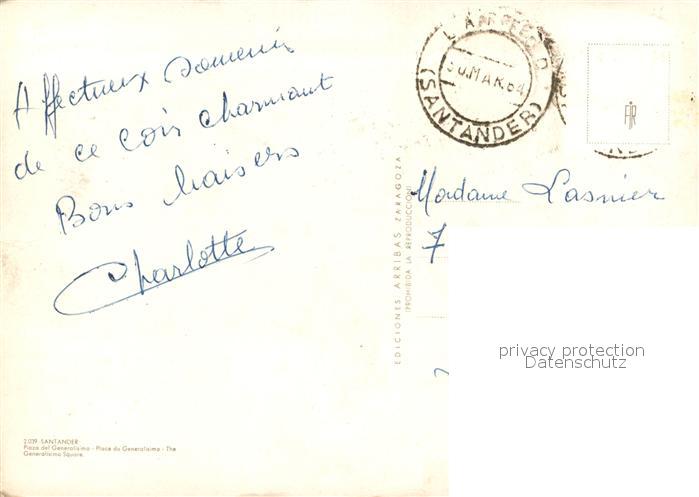 Affectueux souvenir
de ce coin charmant
Bons baisers
Charlotte
2.039 SANTANDER
Plaza del Generalísimo - Place du Generalisimo - The
Generalísimo Square.
EDICIONES ARRIBAS ZARAGOZA
(PROHIBIDA LA REPRODUCCION)
LAREDO
30.MAR.64
(SANTANDER)
Madame Lasnier
7
privacy protection
Datenschutz